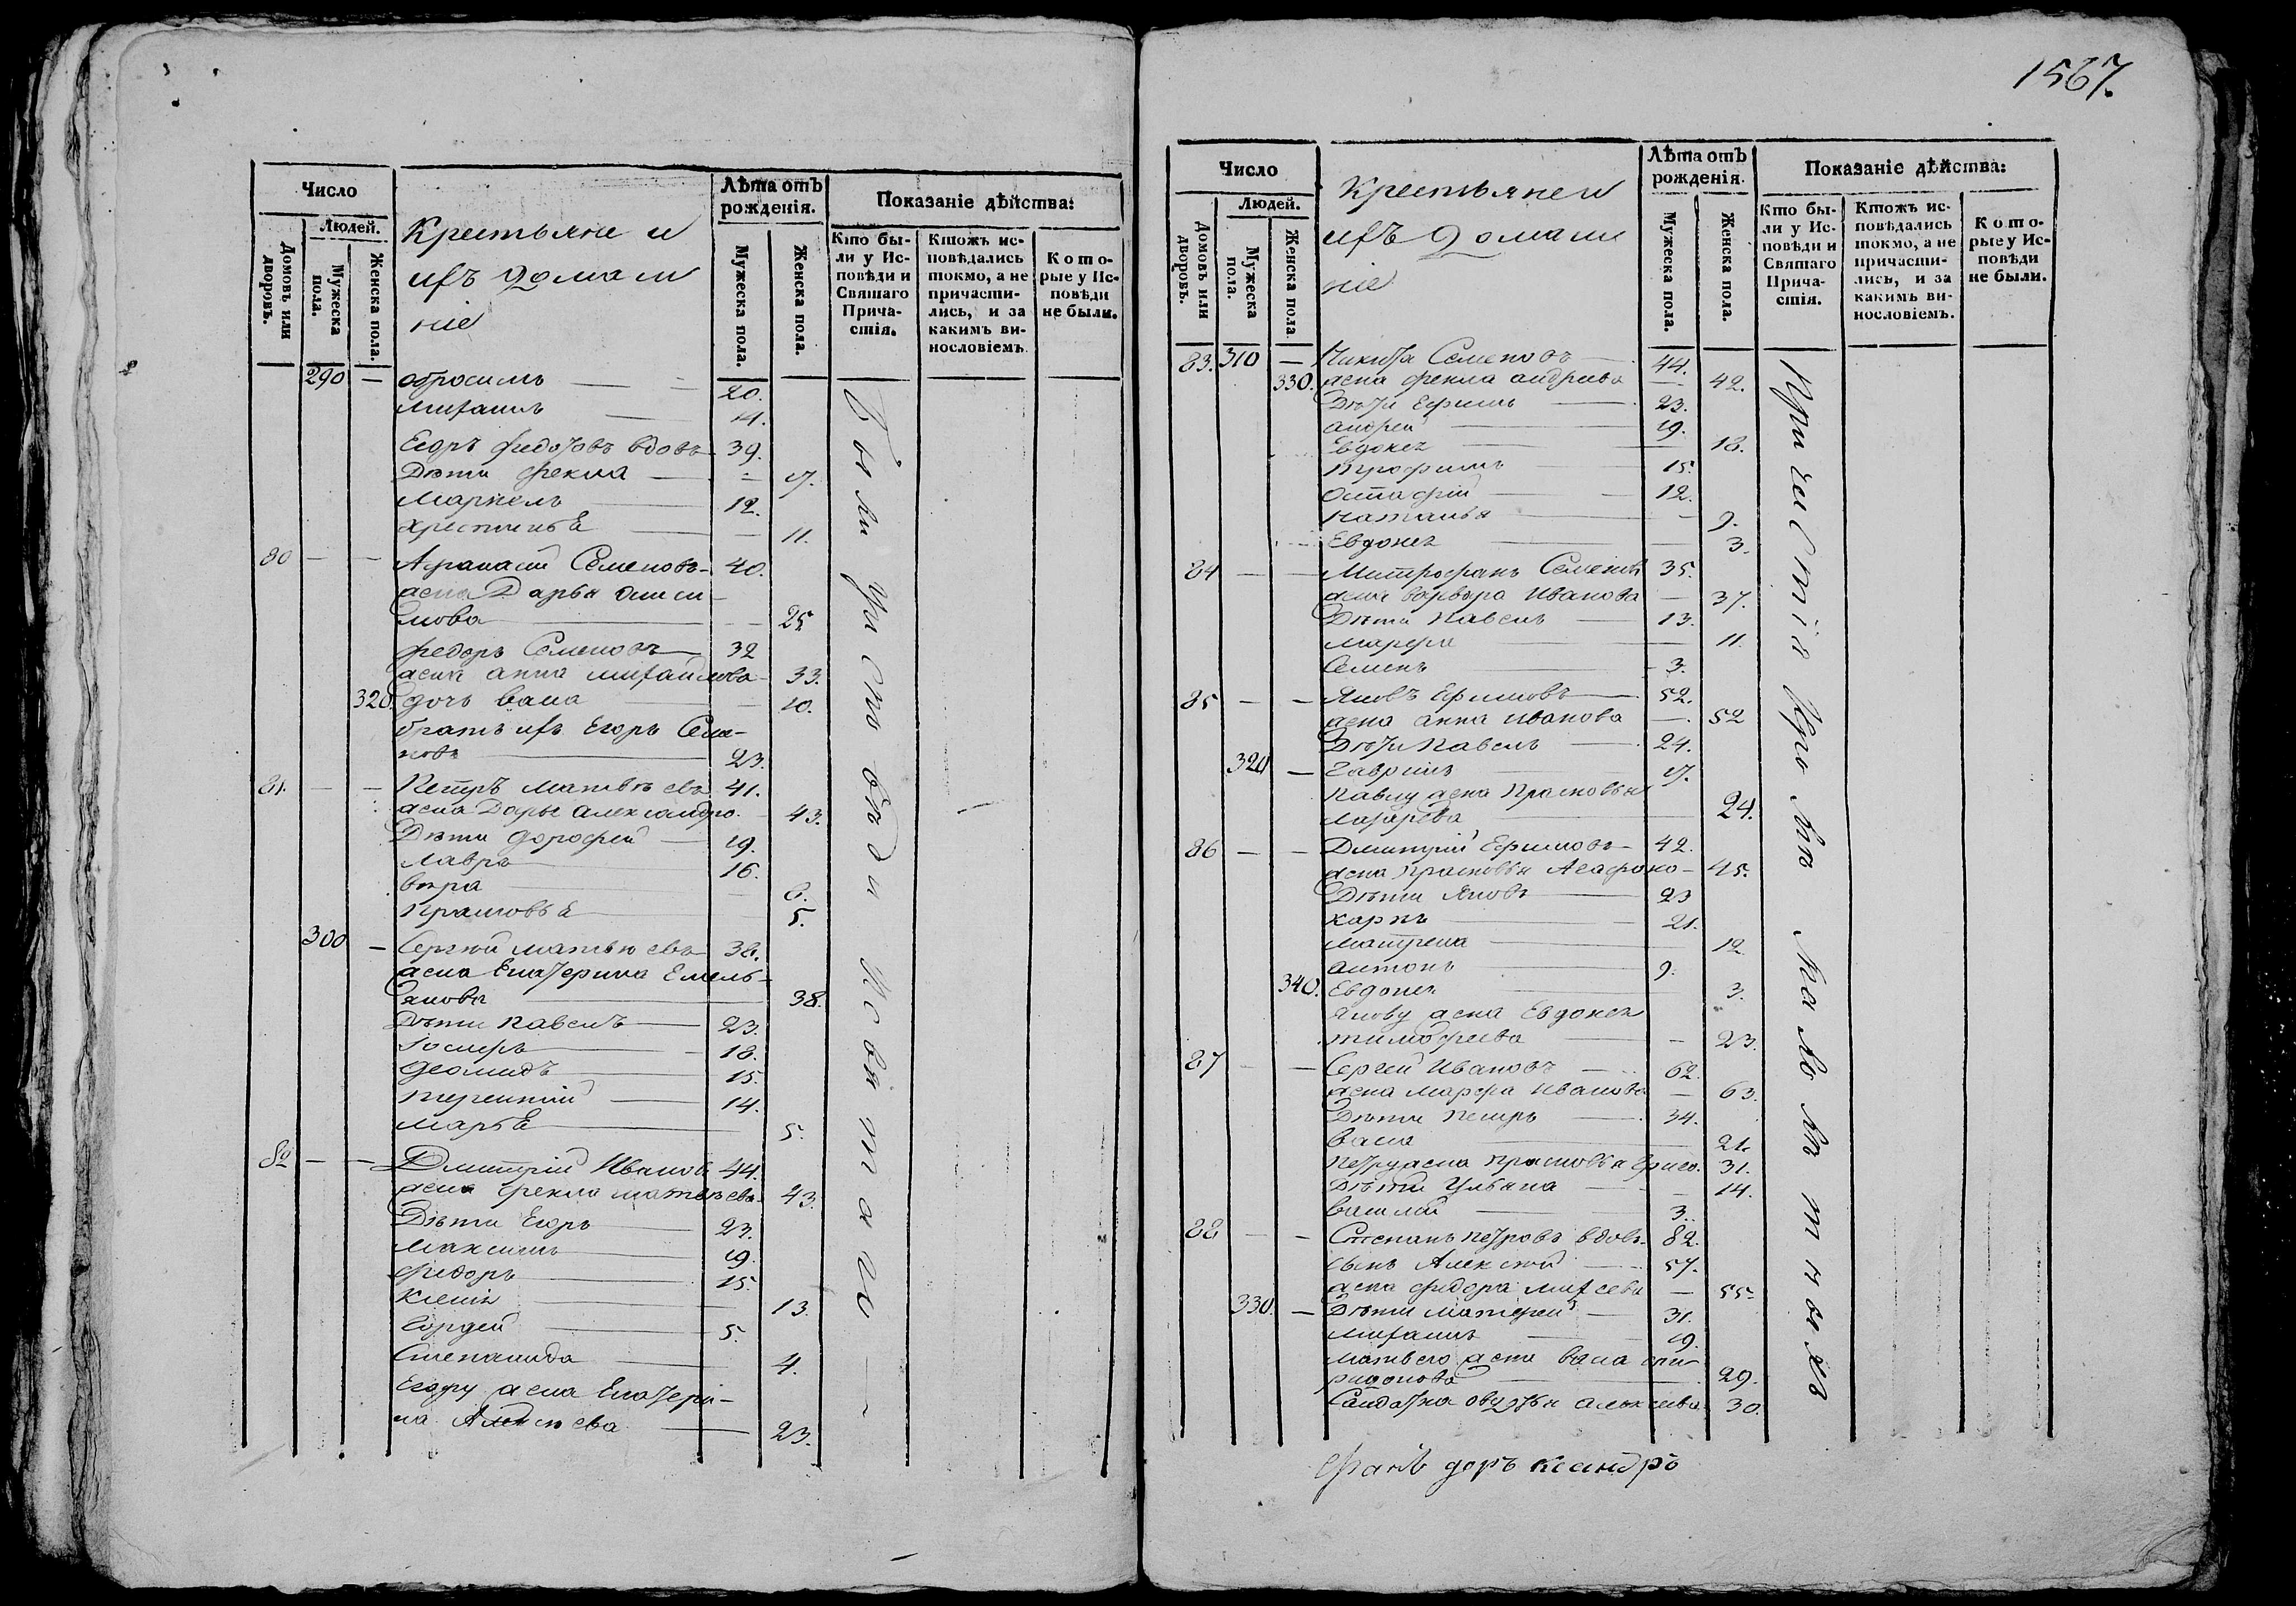 1567.
Число
Людей.
Домовъ или дворовъ.
Мужеска пола.
Женска пола.
Крестьяне и
ихъ домаш
ніе
Лѣта отъ рожденія.
Мужеска пола.
Женска пола.
Показаніе дѣйства:
Кто бы-
ли у Ис-
повѣди и
Святаго
Прича-
стія.
Ктожъ ис-
повѣдались
токмо, а не
причасти-
лись, и за
какимъ ви-
нословіемъ.
Кото-
рые у Ис-
повѣди
не были.
290 — Обросимъ — 20.
Михаилъ — 14.
Егоръ Федотовъ вдовъ 39.
Дѣти Фекла — 17.
Маркелъ — 12.
Христинья — 11.
80 — — Афанасій Семеновъ 40.
жена Дарья Ониси
мова — 25
Федоръ Семеновъ 32
жена Анна Михайлова 33.
320. дочь Васа — 10.
братъ ихъ Егоръ Семе-
новъ — 23.
81. — — Петръ Матвѣевъ 41.
жена Дарья Александро. 43.
Дѣти Дорофей — 19.
Лавръ — 16.
Вѣра — 6.
Прасковья — 5.
300 — Сергѣй Матвѣевъ 38.
жена Екатерина Емель-
янова — 38.
Дѣти Павелъ — 23.
18.
Деомидъ — 15.
Терентій — 14.
Марья — 5.
82 — — Дмитрій Иванов 44.
жена Фекла Матвѣева 43.
Дѣти Егоръ — 23.
Максимъ — 19.
Федоръ — 15.
Ксенія — 13.
Гордей — 5.
Степанида — 4.
Егору жена Екатери-
на Алексѣева — 23.
Были у исповѣди и святаго
Число
Людей.
Домовъ или дворовъ.
Мужеска пола.
Женска пола
Крестьяне и
ихъ домаш
ніе
Лѣта отъ рожденія.
Мужеска пола.
Женска пола.
Показаніе дѣйства:
Кто бы-
ли у Ис-
повѣди и
Святаго
Прича-
стія.
Ктожъ ис-
повѣдались
токмо, а не
причасти-
лись, и за
какимъ ви-
нословіемъ.
Кото-
рые у Ис-
повѣди
не были.
83. 310 — Никита Семеновъ 44.
330. жена Фекла Андреева — 42.
Дѣти Ефимъ — 23.
Андрей — 19.
Евдокея — 18.
Трофимъ — 15.
Остафій — 12.
Наталья — 9.
Евдокея — 3.
84 — — Митрофанъ Семеновъ 35.
жена Варвара Иванова — 37.
Дѣти Павелъ — 13.
Марфа — 11.
Семенъ — 3.
85 — — Яковъ Ефимовъ — 52.
жена Анна Иванова — 52
Дѣти Павелъ — 24.
320 — Гаврилъ — 17.
Павлу жена Прасковья
Лазарева — 24.
86 — — Дмитрій Ефимовъ 42.
жена Прасковья Агафоно- 45.
Дѣти Яковъ — 23
Карпъ — 21.
Матрена — 12
Антонъ — 9.
340. Евдокея — 3.
Якову жена Евдокея
Тимофеева — 23.
87 — — Сергей Ивановъ — 62.
жена Марфа Иванова — 63.
Дѣти Петръ — 34.
Васа — 21.
Петру жена Прасковья Григо. 31.
Дѣти Ульяна — 14.
Василій — 3.
88 — — Степанъ Петровъ вдовъ 82.
сынъ Алексѣй — 57.
жена Федора — 55.
330. — Дѣти Матвей — 31.
Михаилъ — 19.
Матвею жена Васа Спи-
ридонова — 29.
Солдатка Авдотья Алексеева 30.
Причастія